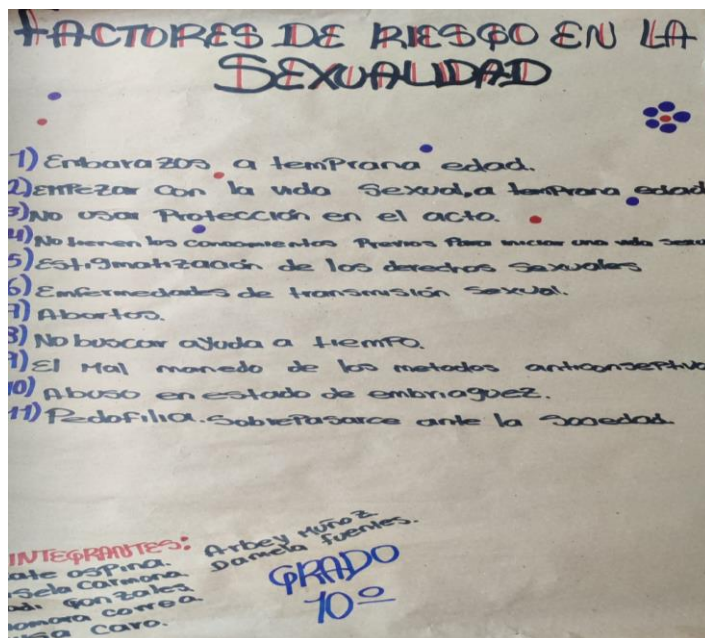 FACTORES DE RIESGO EN LA
SEXUALIDAD
1) Embarazos a temprana edad.
2) Empezar con la vida sexual, a temprana edad
3) No usar Protección en el acto.
4) No tienen los conocimientos Previos Para iniciar una vida sexu
5) Estigmatización de los derechos sexuales
6) Emfermedades de transmisión sexual.
7) Abortos.
8) No buscar ayuda a tiempo.
9) El mal manedo de los metodos anticonseptivo
10) Abuso en estado de embriaguez.
11) Pedofilia. Sobrepasarce ante la sociedad.
INTEGRANTES: Arbey Muñoz
ate ospina. Daniela fuentes.
sela carmona
adi gonzales
iomara correa.
isa caro.
GRADO
10º